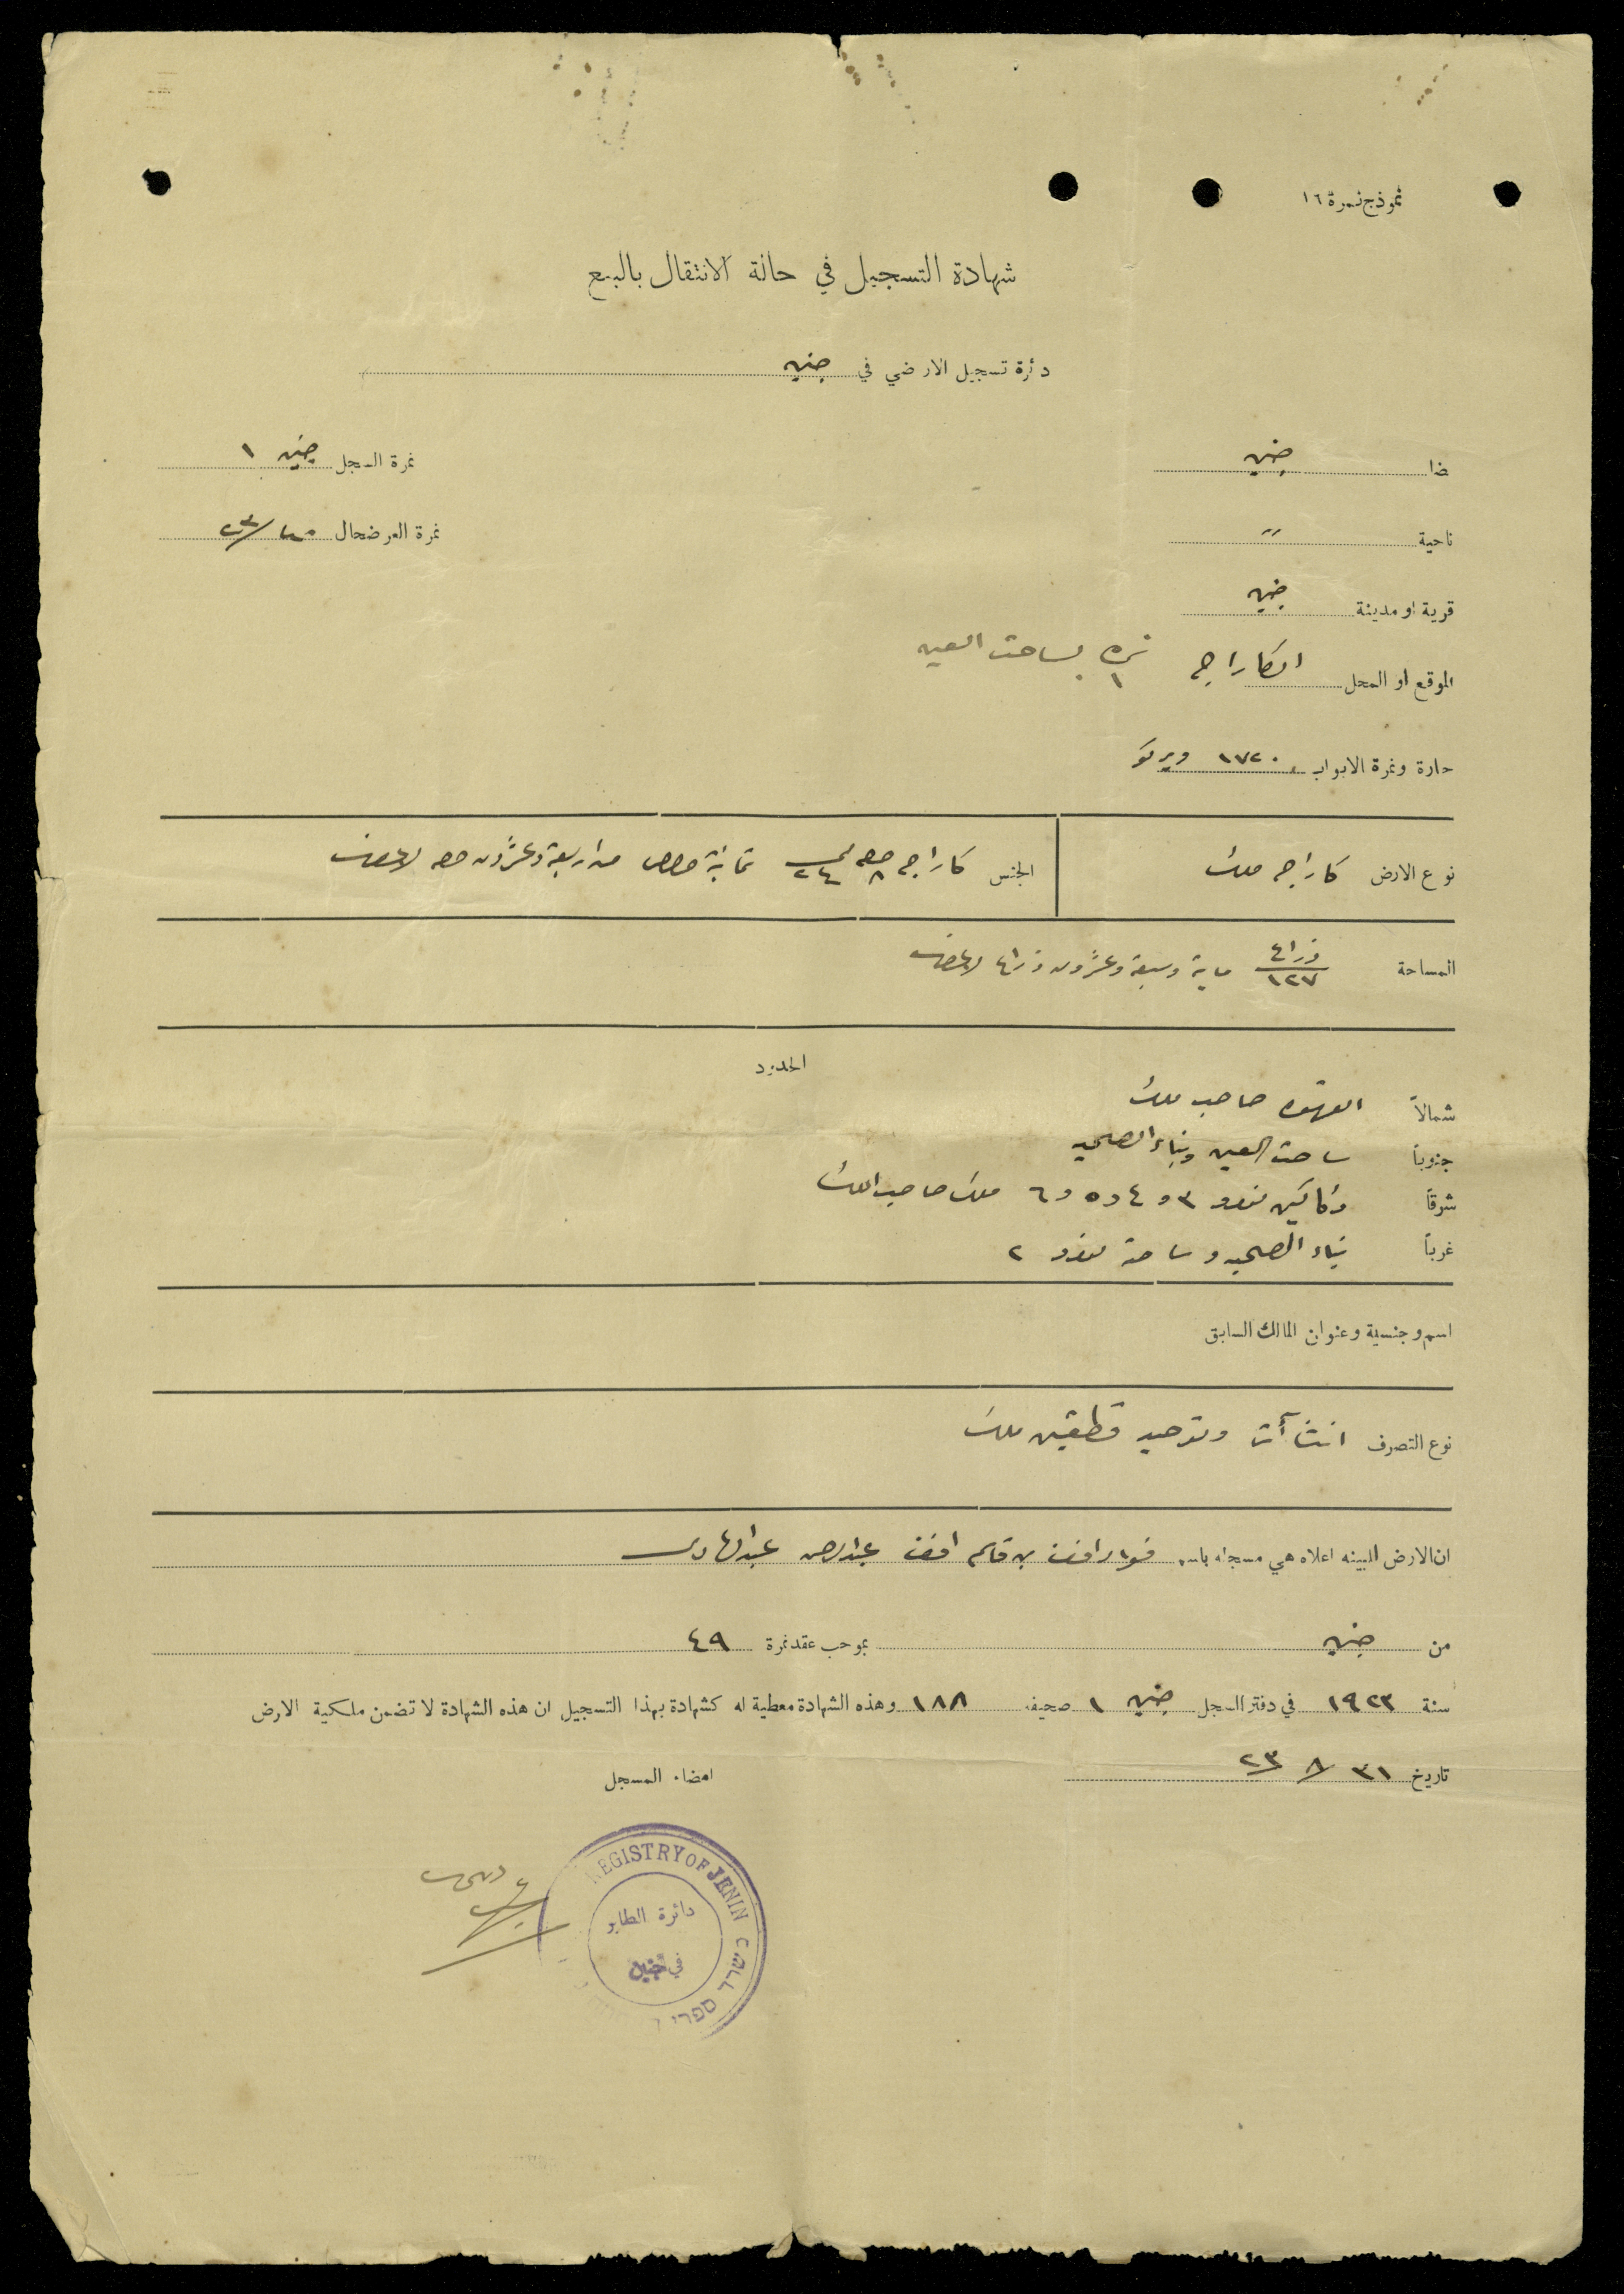 نموذج نمرة ١٦
شهادة التسجيل في حالة الانتقال بالبيع
دئرة تسجيل الارضي في جنين
ضا جنين
نمرة السجل جنين ١
ناحية 〃
نمرة العرضحال /٢٣
قرية او مدينة جنين
الموقع او المحل الكاراج نمره ١ بساحة العين
حارة ونمرة الابواب ١٧٢٠ ويركو
نوع الارض كاراج ملك
الجنس كاراج حصه ٨ ٢٤ ثمانية حصص من اربعة وعشرون حصه لاغير
المساحة ذراع ١٢٧ ماية وسبعة وعشرون ذراع لاغير
الحدود
شمالاً القهوه صاحب ملك
جنوباً ساحة العين وبناء الصحيه
شرقاً دكاكين نمرو ٣ و ٤ و ٥ و ٦ ملك صاحب الملك
غرباً بناء الصحيه وساحة نمرو ٢
اسم وجنسية وعنوان المالك السابق
نوع التصرف انشاآت وتوحيد قطعتين ملك
ان الارض المبينه اعلاه هي مسجله باسم فؤاد افندي بن قاسم افندي عبد الهادي
من جنين بموجب عقد نمرة ٤٩
سنة ١٩٢٣ في دفتر السجل جنين ١ صحيفة ١٨٨ وهذه الشهادة معطية له كشهادة بهذا التسجيل ان هذه الشهادة لا تضمن ملكية الارض
تاريخ ٣١ / ٨ / ٢٣
امضاء المسجل
REGISTRY OF JENIN
دائرة الطابو
في جنين
ספרי